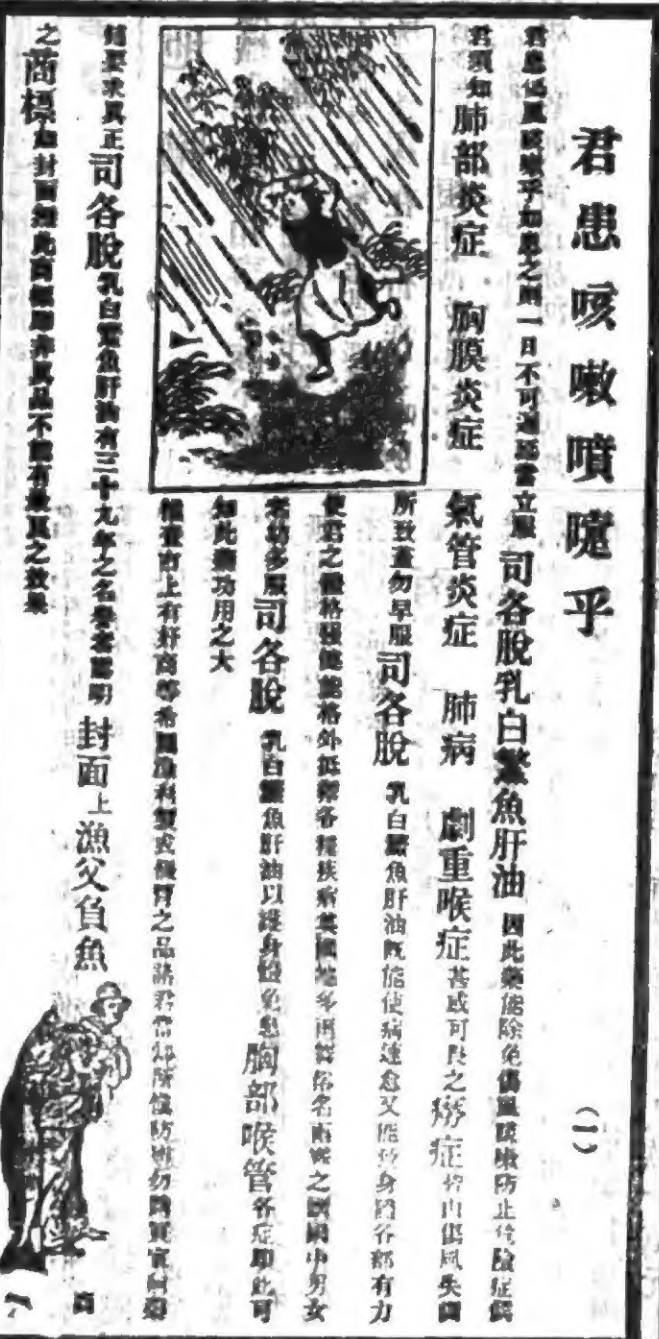 君患咳嗽噴嚏乎 (一)
君患傷風咳嗽乎如患之則一日不可遲延當立服 司各脫乳白鱉魚肝油 因此藥能除免傷風咳嗽防止危險症候
君須知 肺部炎症 胸膜炎症 氣管炎症 肺病 劇重喉症 甚或可畏之 癆症 皆由傷風失調
所致盍勿早服 司各脫 乳白鱉魚肝油既能使病速愈又能使身體各部有力
使君之體格強健能格外抵禦各種疾病英國地多雨 俗名雨 之 中男女
老幼多服 司各脫 乳白鱉魚肝油以護身體免患 胸部喉管 各症即此可
知此藥功用之大
市上有奸商 漁利製 之品諸君當知所 防 勿購買
求真正 司各脫 乳白鱉魚肝油有三十九年之名譽 明 封面上漁父負魚
之 商標 如封面無此商標即非真品不能有最良之效果
商